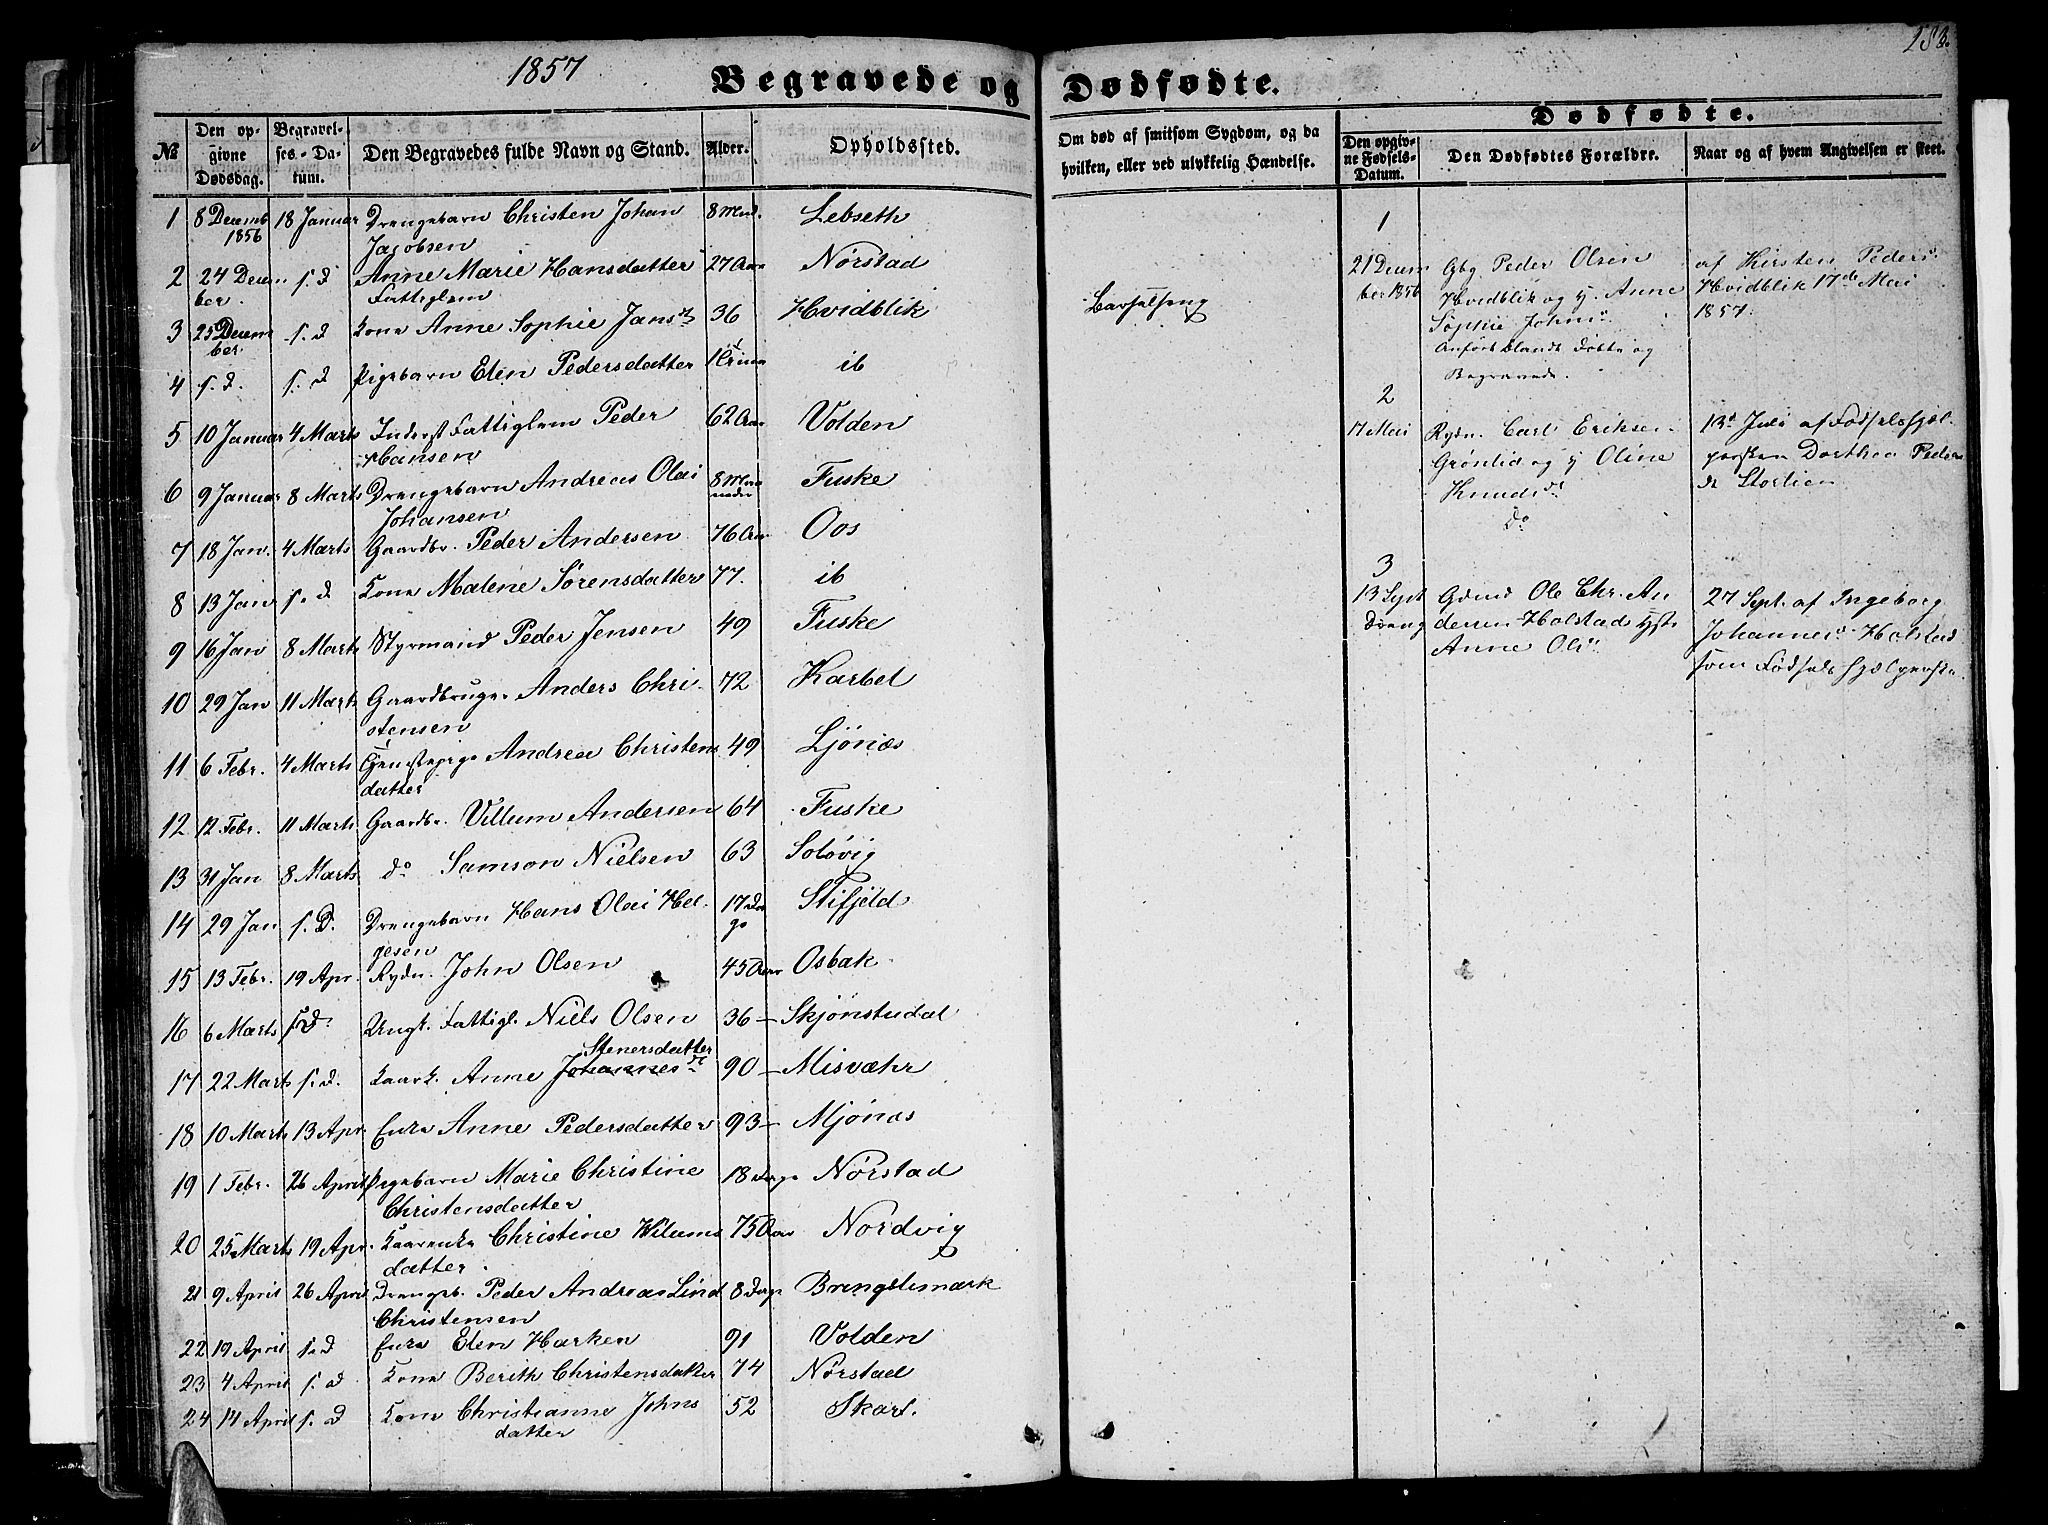 1857
183.
Begravede og Dødfødte.
Dødfødte.
№
Den op-
givne
Dødsdag.
Begravel-
ses-Da-
tum.
Den Begravedes fulde Navn og Stand.
Alder.
Opholdssted.
Om død af smitsom Sygdom, og da
hvilken, eller ved ulykkelig Hændelse.
Den opgiv-
ne Fødsels-
Datum.
Den Dødfødtes Forældre.
Naar og af hvem Angivelsen er skeet.
1 8 Decemb 18 Januar Drengebarn Christen Johan 8 Mnd. Lebseth
1856 Jacobsen
2 24 Decem s. d Anne Marie Hansdatter 27 Aar Nørstad
ber. Fattiglem
3 25 Decem s. d Kone Anne Sophie Jansd 36 Hvidblik Barselseng
ber
4 s. d. s. d Pigebarn Elen Pedersdatter ib
5 10 Januar 4 Marts Inderst Fattiglem Peder 62 Aar Volden
Hansen
6 9 Januar 8 Marts Drengebarn Andreas Olai 8 Maa Fuske
Johansen neder
7 18 Jan. 4 Marts Gaardbr. Peder Andersen 76 Aar Oos
8 13 Jan s. d Kone Malene Sørensdatter 77. ib
9 16 Jan 8 Marts Styrmand Peder Jensen 49 Fuske
10 29 Jan 11 Marts Gaardbruger Anders Chri- 72 Karbøl
stensen
11 6 Febr. 4 Marts Tjenestepige Andrea Christens 49 Ljønæs
datter
12 12 Febr. 11 Marts Gaardbr. Villum Andersen 64 Fuske
13 31 Jan 8 Marts do Samson Nielsen 63 Soløvig
14 29 Jan s. D. Drengebarn Hans Olai Hel- 17 Da Stifjeld
gesen ge
15 13 Febr. 19 Apr. Rydn. John Olsen 45 Aar Osbak
16 6 Marts s. d. Ungk. Fattigl. Niels Olsen 36 — Skjønstudal
Stenersdatter
17 22 Marts s. d. Kaark. Anne Johannesd 90 — Misvæhr
18 10 Marts 13 Apr. Enke Anne Pedersdatter 93 — Mjønæs
19 1 Febr. 26 April Pigebarn Marie Christine 18 Dage Nørstad
Christensdatter
20 25 Marts 19 Apr. Kaarenke Christine Wilums 75 Aar Nordvig
datter
21 9 April 26 April Drengeb. Peder Andreas Lind 8 Dage Brengslimark
Christensen
22 19 April s. d Enke Elen Harken 91 Volden
23 4 April s. d Kone Berith Christensdatter 74 Nørstad
24 14 April s. d Kone Christianne Johns 52 Skar.
datter
1
21 Decem Gbg Peder Olsen af Kirsten Peders
ber 1856 Hvidblik og H. Anne Hvidblik 17de Mai
Sophie Johns 1857.
Anført blandt Døbte og
Begravede.
2
17 Mai Rydn. Carl Eriksen 13d Juli af Fødselshjæl-
Grønlid og H Oline persken Dorthea Peders
Knudsd d Storlien
do
3
13 Sept Gdmd Ole Chr. An 27 Sept. af Ingeborg
Dreng dersen Holstad Hst. Johannesd Holstad
Anne Olsd som Fødselshjælperske.